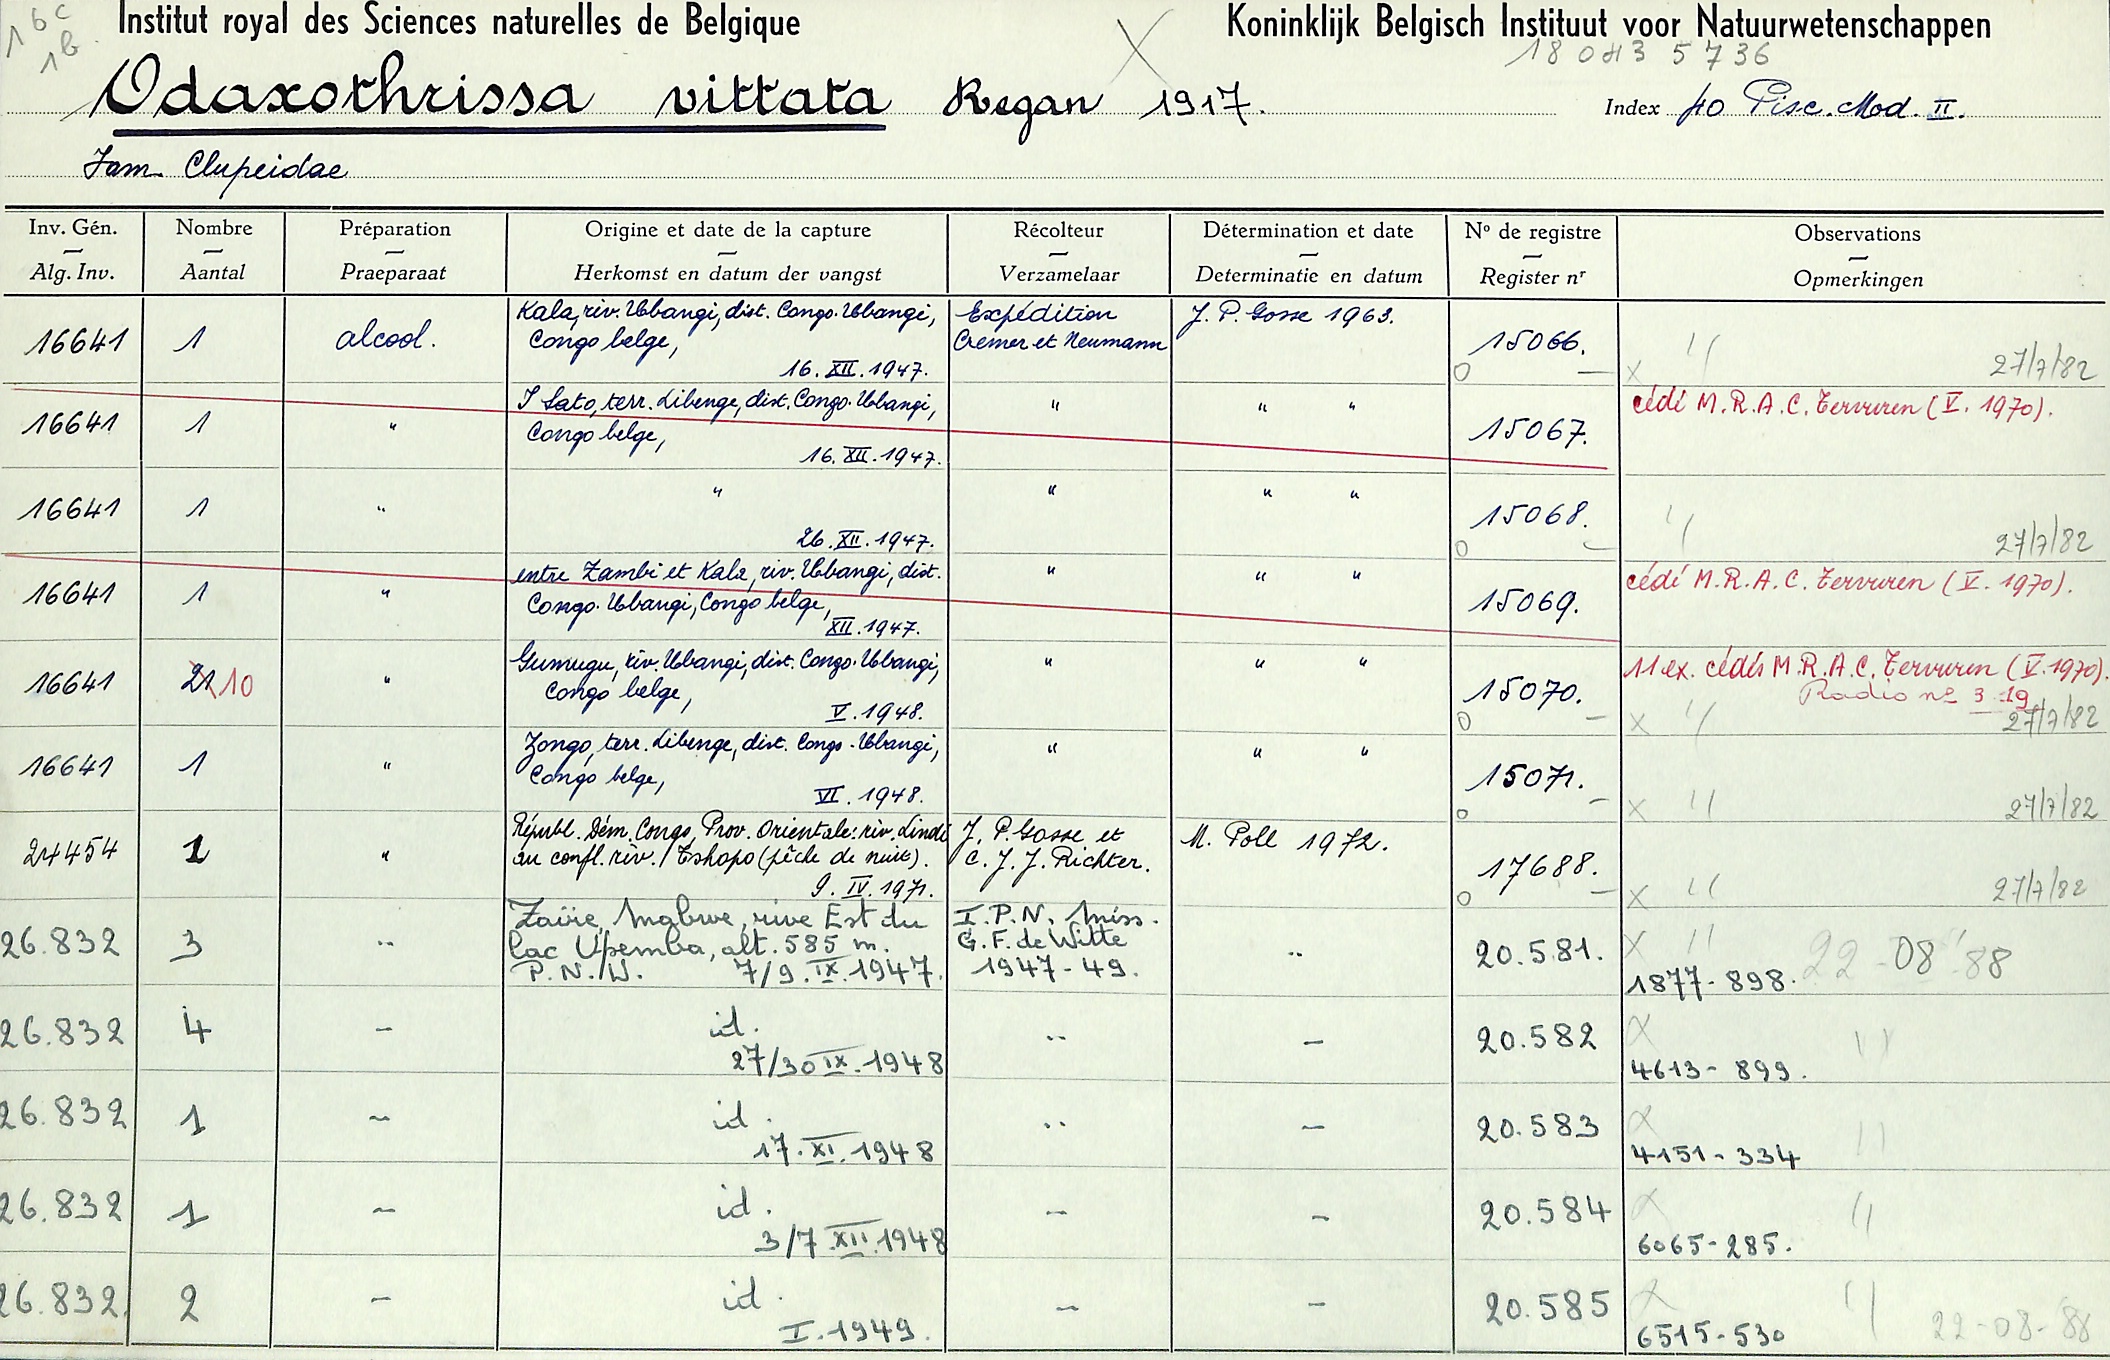 16c
1b
Institut royal des Sciences naturelles de Belgique
Koninklijk Belgisch Instituut voor Natuurwetenschappen
X
18 043 5736
Odaxothrissa vittata Regan 1917.
Index 40 Pisc. Mod. II.
Fam. Clupeidae
Inv. Gén. — Alg. Inv.
Nombre — Aantal
Préparation — Praeparaat
Origine et date de la capture — Herkomst en datum der vangst
Récolteur — Verzamelaar
Détermination et date — Determinatie en datum
Nº de registre — Register nr
Observations — Opmerkingen
16641 1 alcool. Kala, riv. Ubangi, dist. Congo-Ubangi, Expédition J. P. Gosse 1963. 15066. x "
Congo belge, Cremer et Neumann
16.XII.1947. 27/7/82
16641 1 " I Sato, terr. Libenge, dist. Congo-Ubangi, " " " 15067. cédé M.R.A.C. Tervuren (V.1970).
Congo belge,
16.XII.1947.
16641 1 " " " " " 15068. "
26.XII.1947. 27/7/82
16641 1 " entre Zambi et Kala, riv. Ubangi, dist. " " " 15069. cédé M.R.A.C. Tervuren (V.1970).
Congo-Ubangi, Congo belge,
XII.1947.
16641 21 10 " Gumugu, riv. Ubangi, dist. Congo-Ubangi, " " " 15070. 11 ex. cédés M.R.A.C. Tervuren (V.1970).
Congo belge, Radio nº 3 19
V.1948. x " 27/7/82
16641 1 " Zongo, terr. Libenge, dist. Congo-Ubangi, " " " 15071. x "
Congo belge,
VI.1948. 27/7/82
24454 1 " Républ. Dém. Congo, Prov. Orientale: riv. Lindi J. P. Gosse et M. Poll 1972. 17688. x "
au confl. riv. Tshopo (pêche de nuit). C. J. J. Richter.
9.IV.1971. 27/7/82
26.832 3 " Zaïre, Mabwe, rive Est du I.P.N. Miss. " 20.581. x " 22-08-88
lac Upemba, alt. 585 m. G. F. de Witte
P.N.U. 7/9.IX.1947. 1947-49. 1877-898.
26.832 4 – id. " – 20.582 x "
27/30 IX.1948 4613-899.
26.832 1 – id. " – 20.583 x "
17.XI.1948 4151-334
26.832 1 – id. – – 20.584 x "
3/7.XII.1948 6065-285.
26.832. 2 – id. – – 20.585 x "
I.1949. 6515-530 22-08-88